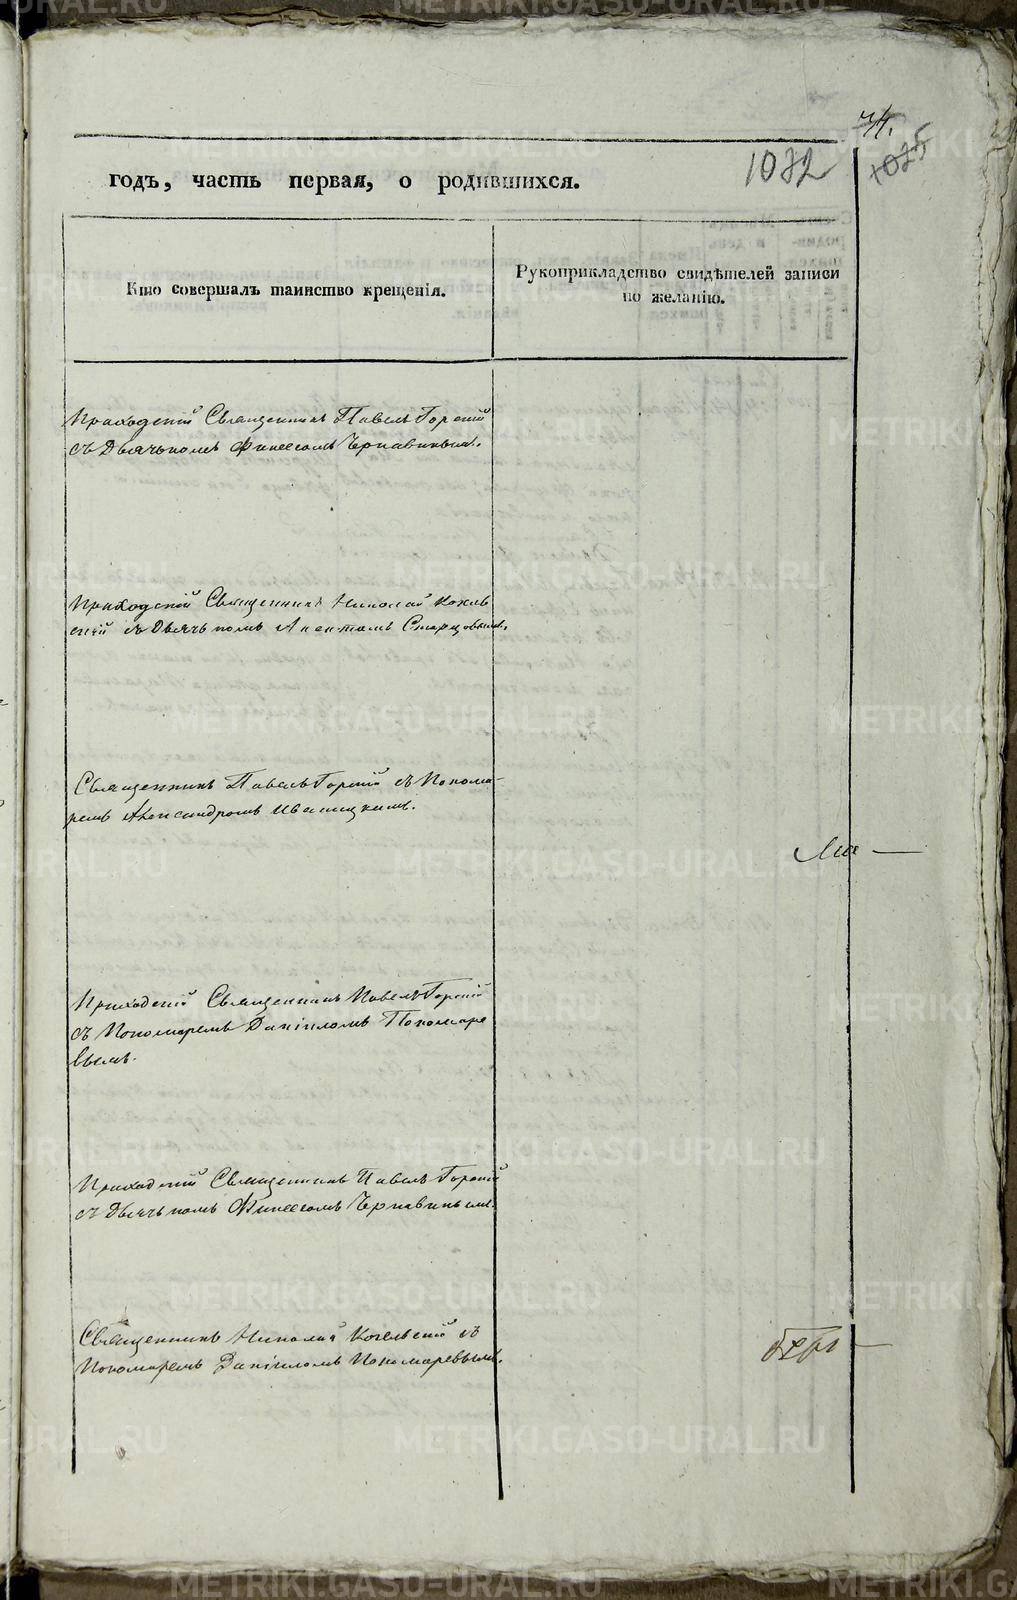 74.
1032
1025
годъ, часть первая, о родившихся.
Кто совершалъ таинство крещенія.
Рукоприкладство свидѣтелей записи
по желанію.
Приходскій Священникъ Павелъ Горскій
съ Дьячькомъ Финеесомъ Чернавинымъ.
Приходскій Священникъ Николай Кохель
скій съ Дьячькомъ Старцовымъ.
Священникъ Павелъ Горскій съ Понома-
ремъ Александромъ Иваницкимъ.
Приходскій Священникъ Павелъ Горскій
съ Пономаремъ Даніиломъ Пономаре
вымъ.
Приходскій Священникъ Павелъ Горскій
съ Дьячькомъ Финеесомъ Чернавинымъ.
Священникъ Николай Кохельскій съ
Пономаремъ Даніиломъ Пономаревымъ.
METRIKI.GASO-URAL.RU